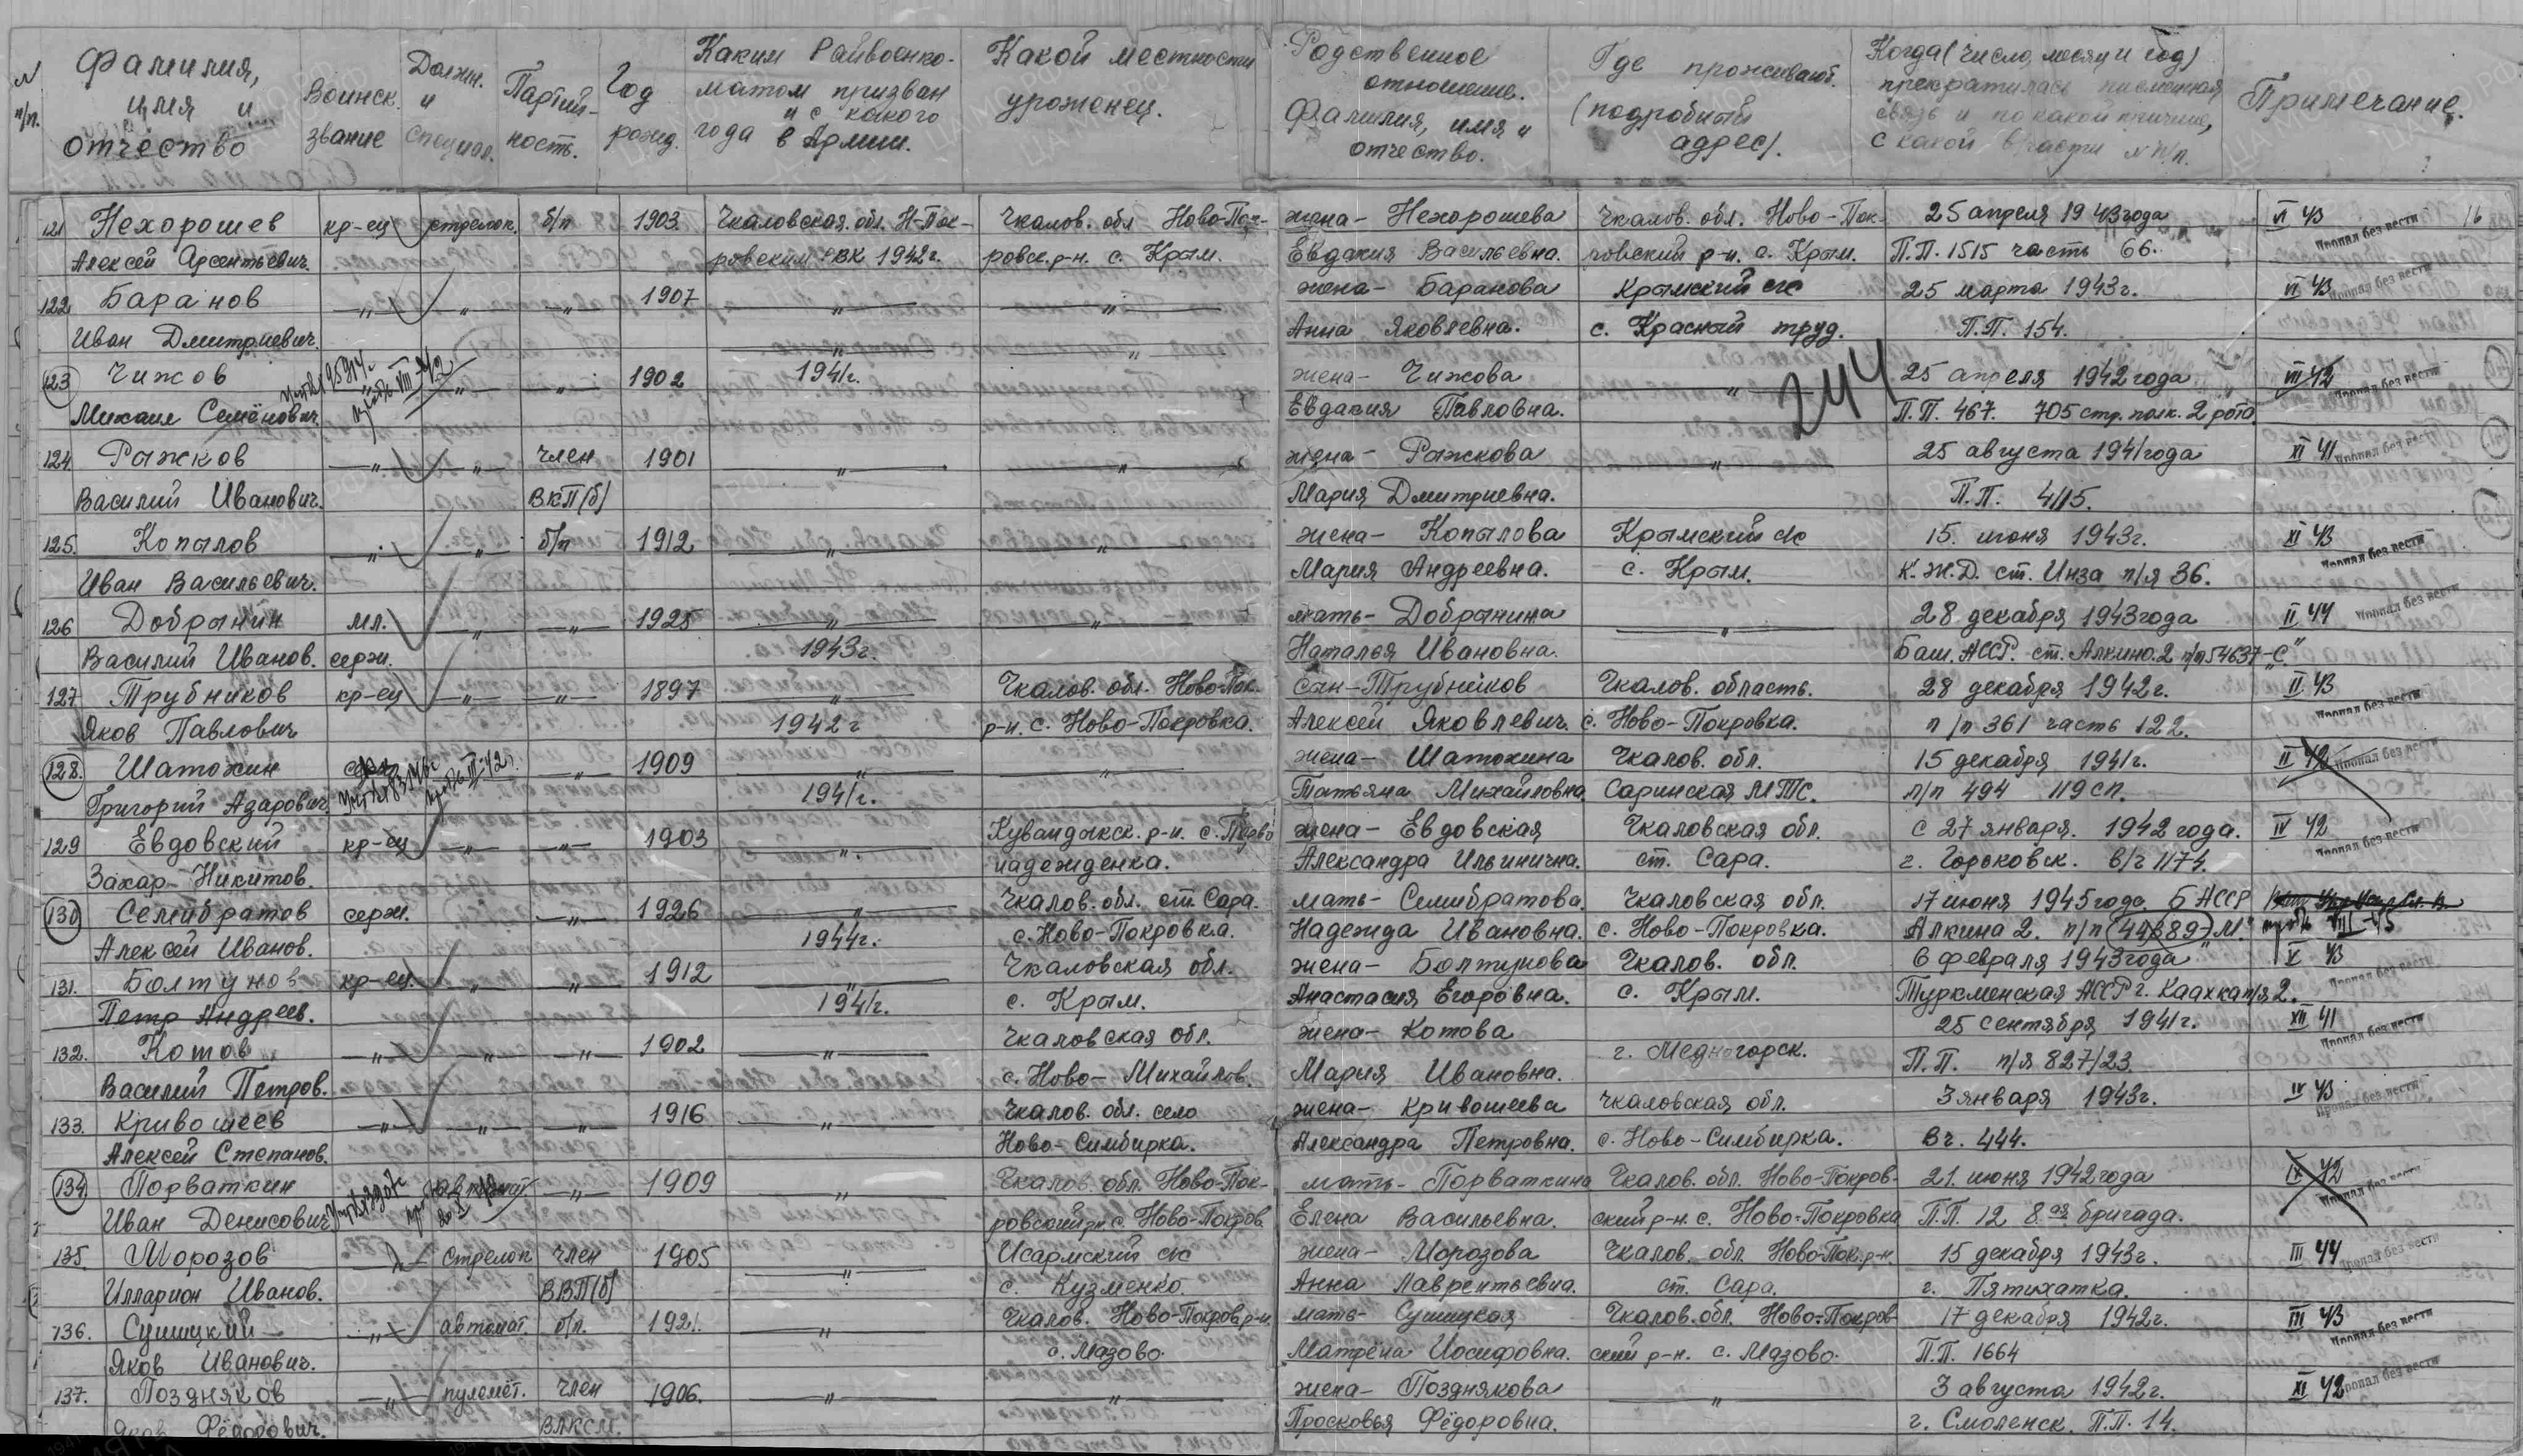 N п/п. Фамилия, имя и отчество Воинск. звание Должн. и специал. Партий-ность. Год рожд. Каким Райвоенко-матом призван и с какого года в Армии. Какой местности уроженец. Родственное отношение. Фамилия, имя и отчество. Где проживают (подробный адрес). Когда (число, месяц и год) прекратилась письменная связь и по какой причине, с какой в/части N п/п. Примечание.
121 Нехорошев кр-ец стрелок. б/п 1903. Чкаловская обл. Н-Пок- Чкалов. обл Ново-Пок- жена - Нехорошева Чкалов. обл. Ново-Пок- 25 апреля 1943 года VI 43 Пропал без вести 16
Алексей Арсентьевич. ровским РВК 1942г. ровск. р-н. с. Крым. Евдакия Васильевна. ровский р-н. с. Крым. П.П. 1515 часть 66.
122 Баранов —"— —"— —"— 1907 —"— —"— жена - Баранова Крымский с/с 25 марта 1943г. VI 43 Пропал без вести
Иван Дмитриевич. —"— —"— Анна Яковлевна. с. Красный труд. П.П. 154.
123 Чижов —"— —"— 1902 1941г. жена - Чижова —"— 244 25 апреля 1942 года VIII 42 Пропал без вести
Михаил Семёнович. Евдакия Павловна. П.П. 467. 705 стр. полк. 2 рота
124 Рыжков —"— —"— член 1901 —"— —"— жена - Рыжкова —"— 25 августа 1941 года XI 41 Пропал без вести
Василий Иванович. ВКП(б) Мария Дмитриевна. П.П. 4115.
125. Копылов —"— —"— б/п 1912 —"— —"— жена - Копылова Крымский с/с 15. июня 1943г. XI 43 Пропал без вести
Иван Васильевич. Мария Андреевна. с. Крым. К.Ж.Д. ст. Инза п/я 36.
126 Добрынин мл. —"— —"— 1925 —"— —"— мать - Добрынина —"— 28 декабря 1943 года II 44 Пропал без вести
Василий Иванов. серж. 1943г. Наталья Ивановна. Баш. АССР. ст. Алкино. 2 п/п 54637-"С"
127 Трубников кр-ец —"— —"— 1897 —"— Чкалов. обл. Ново-Пок. сын - Трубников Чкалов. область. 28 декабря 1942г. II. 43 Пропал без вести
Яков Павлович 1942г р-н. с. Ново-Покровка. Алексей Яковлевич. с. Ново-Покровка. п/п 361 часть 122.
128. Шатохин —"— 1909 —"— —"— жена - Шатохина Чкалов. обл. 15 декабря 1941г. II 42 Пропал без вести
Григорий Азарович. 1941г. Татьяна Михайловна. Саринская МТС. п/п 494 119 сп.
129 Евдовский кр-ец —"— —"— 1903 —"— Кувандыкск. р-н. с. Перво жена - Евдовская Чкаловская обл. с 27 января. 1942 года. IV 42 Пропал без вести
Захар Никитов. надежденка. Александра Ильинична. ст. Сара. г. Горьковск. в/г 1174.
130 Семибратов серж. —"— 1926 —"— Чкалов. обл. ст. Сара. мать - Семибратова. Чкаловская обл. 17 июня 1945 года. БАССР
Алексей Иванов. 1944г. с. Ново-Покровка. Надежда Ивановна. с. Ново-Покровка. Алкина 2. п/п (44889) "М" VIII-45
131. Болтунов кр-ец. —"— —"— 1912 —"— Чкаловская обл. жена - Болтунова Чкалов. обл. 6 февраля 1943 года V 43 Пропал без вести
Петр Андреев. 1941г. с. Крым. Анастасия Егоровна. с. Крым. Туркменская АССР г. Каахка п/я 2.
132. Котов —"— —"— —"— 1902 —"— Чкаловская обл. жена - Котова г. Медногорск. 25 сентября 1941г. XII 41 Пропал без вести
Василий Петров. с. Ново-Михайлов. Мария Ивановна. П.П. п/я 827/23.
133. Кривошеев —"— —"— —"— 1916 —"— Чкалов. обл. село жена - Кривошеева Чкаловская обл. 3 января 1943г. IV 43 Пропал без вести
Алексей Степанов. Ново-Симбирка. Александра Петровна. с. Ново-Симбирка. Вч. 444.
134 Порваткин автомат. —"— 1909 —"— Чкалов. обл. Ново-Пок- мать - Порваткина Чкалов. обл. Ново-Покров- 21. июня 1942 года IX 42 Пропал без вести
Иван Денисович ровский р-н. с. Ново-Покров. Елена Васильевна. ский р-н. с. Ново-Покровка П.П. 12 8.ая бригада.
135. Морозов —"— стрелок член 1905 —"— Исармский с/с жена - Морозова Чкалов. обл. Ново-Пок. р-н. 15 декабря 1943г. III 44 Пропал без вести
Илларион Иванов. ВВП(б) с. Кузменко. Анна Лаврентьевна. ст. Сара. г. Пятихатка.
136. Сушицкий —"— автомат. б/п. 1921. —"— Чкалов. Ново-Покров. р-н. мать - Сушицкая Чкалов. обл. Ново-Покров- 17 декабря 1942г. III 43 Пропал без вести
Яков Иванович. с. Мазово. Матрёна Иосифовна. ский р-н. с. Мазово. П.П. 1664
137. Поздняков —"— пулемёт. член 1906. —"— —"— жена - Позднякова —"— 3 августа 1942г. XI 42 Пропал без вести
Яков Фёдорович. ВЛКСМ. Просковья Фёдоровна. г. Смоленск. П.П. 14.